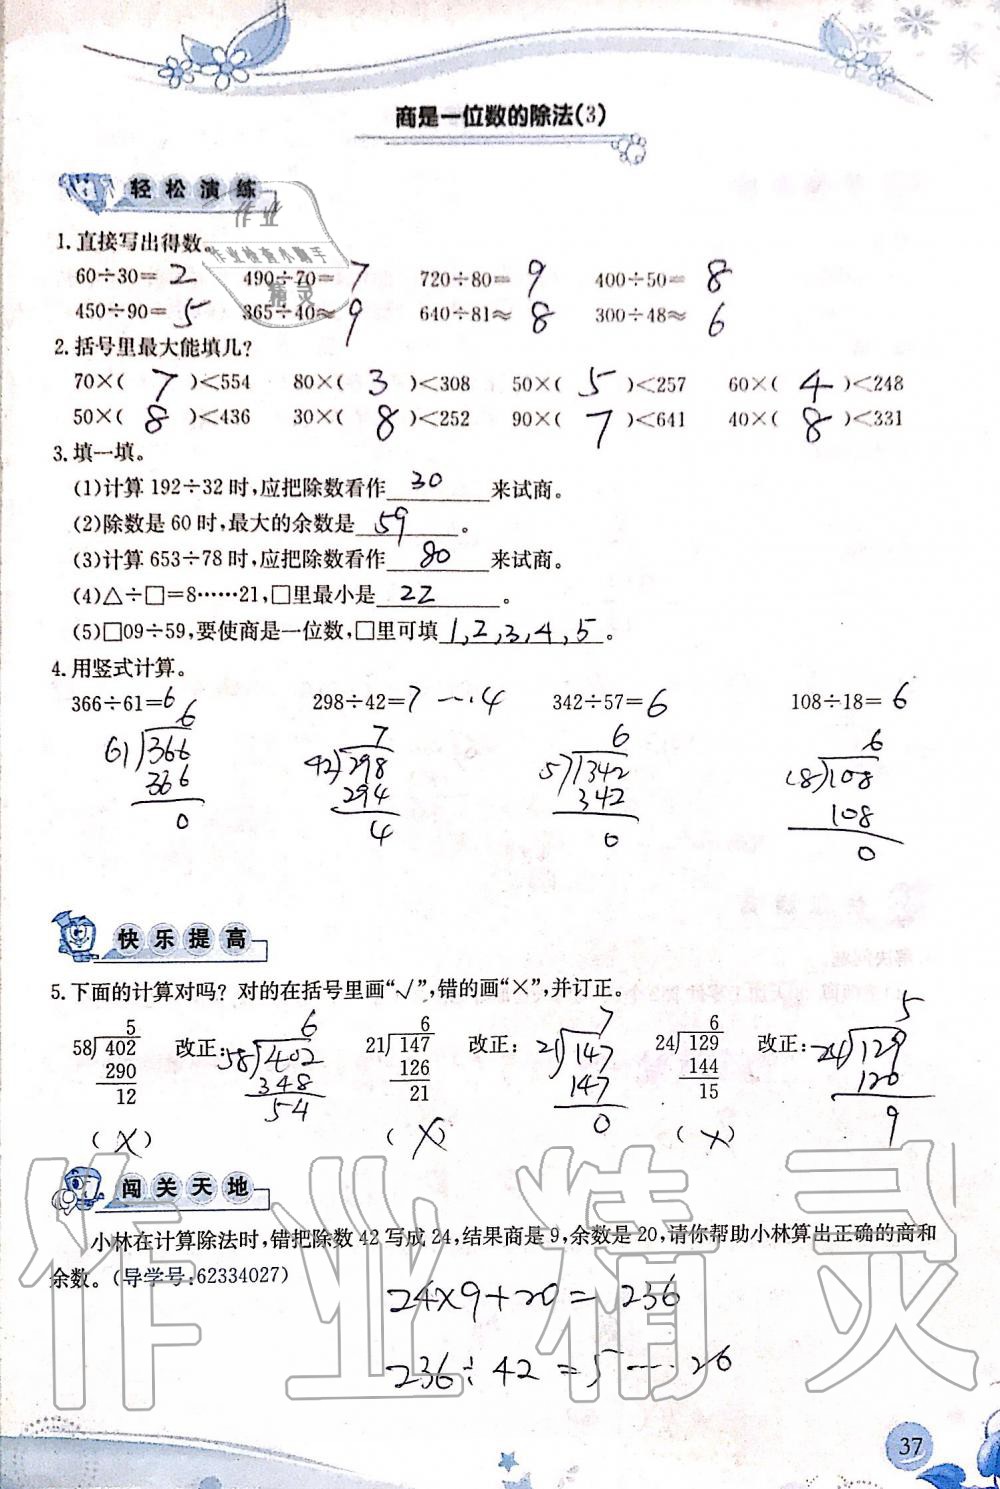 商是一位数的除法(3)
轻松演练
作业
作业检查小助手
精灵
1.直接写出得数。
60÷30=2 490÷70=7 720÷80=9 400÷50=8
450÷90=5 365÷40≈9 640÷81≈8 300÷48≈6
2.括号里最大能填几?
70×( 7 )<554 80×( 3 )<308 50×( 5 )<257 60×( 4 )<248
50×( 8 )<436 30×( 8 )<252 90×( 7 )<641 40×( 8 )<331
3.填一填。
(1)计算192÷32时,应把除数看作 30 来试商。
(2)除数是60时,最大的余数是 59 。
(3)计算653÷78时,应把除数看作 80 来试商。
(4)△÷□=8……21,□里最小是 22 。
(5)□09÷59,要使商是一位数,□里可填 1,2,3,4,5 。
4.用竖式计算。
366÷61=6 298÷42=7……4 342÷57=6 108÷18=6
6 7 6 6
61 366 42 298 57 342 18 108
366 294 342 108
0 4 0 0
快乐提高
5.下面的计算对吗?对的在括号里画“√”,错的画“×”,并订正。
5 6 6 7 6 5
58 402 改正: 58 402 21 147 改正: 21 147 24 129 改正: 24 129
290 348 126 147 144 120
12 54 21 0 15 9
(×) (×) (×)
闯关天地
小林在计算除法时,错把除数42写成24,结果商是9,余数是20,请你帮助小林算出正确的商和
余数。(导学号:62334027)
24×9+20=236
236÷42=5……26
作业精灵
37